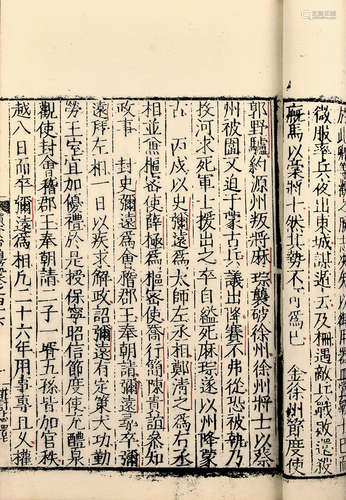 微服率兵夜出東城謀遁去及柵遇敵比戰改還被
廐馬以將士然其勢不可為已 金徐州節度使
郭野驢約源州叛將麻琮襲破徐州徐州將士以蔡
州被圍又迫于蒙古兵議出降賽不弗從恐被執乃
投河求死軍士援出之卒自縊死麻琮遂以州降蒙
古 丙戌以史彌遠為太師左丞相鄭清之為右丞
相並兼樞密使薛極為樞密使喬行簡陳貴誼參知
政事 封史彌遠為會稽郡王奉朝請彌遠尋卒彌
遠拜左相一日以疾求解政詔彌遠有定策大功勤
勞王室宜加優禮於是授保寧昭信節度使充醴泉
觀使封會稽郡王奉朝請二子一壻五孫皆加官秩
越八日而卒彌遠為相凡二十六年用事專且久權